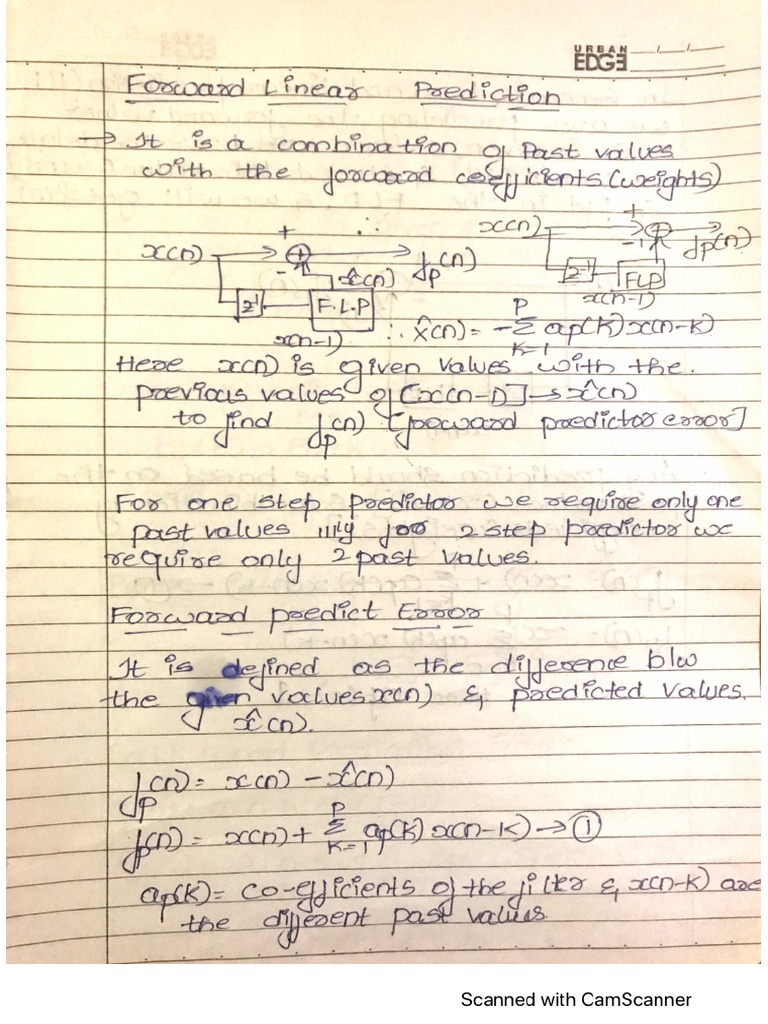 URBAN
EDGE
Forward Linear Prediction
→ It is a combination of Past values
with the forward coefficients (weights)
x(n) + - x̂(n) fp(n) z⁻¹ F.L.P x(n-1)
x(n) + -1 fp(n) z⁻¹ FLP x(n-1)
∴ x̂(n) = -Σ_{K=1}^{P} ap(K) x(n-K)
Here x(n) is given values with the
previous values of [x(n-1)] → x̂(n)
to find fp(n) [forward predictor error]
For one step predictor we require only one
past values |||ly for 2 step predictor we
require only 2 past values.
Forward predict Error
It is defined as the difference b/w
the given values x(n) & predicted values.
x̂(n).
fp(n) = x(n) - x̂(n)
fp(n) = x(n) + Σ_{K=1}^{P} ap(K) x(n-K) → ①
ap(K) = co-efficients of the filter & x(n-K) are
the different past values.
Scanned with CamScanner